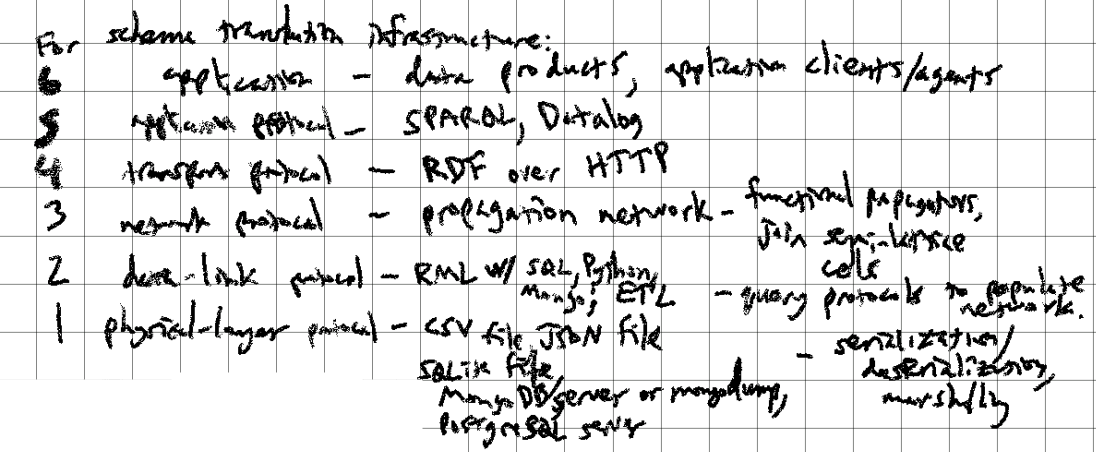 For scheme translation infrastructure:
6 application - data products, application clients/agents
5 application protocol - SPARQL, Datalog
4 transport protocol - RDF over HTTP
3 network protocol - propagation network - functional propagators,
join semi-lattice
cells
2 data-link protocol - RML w/ SQL, Python,
Mongo, ETL - query protocols to populate
network.
1 physical-layer protocol - CSV file, JSON file
SQLite file,
MongoDB server or mongodump,
PostgreSQL server
- serialization/
deserialization,
marshalling